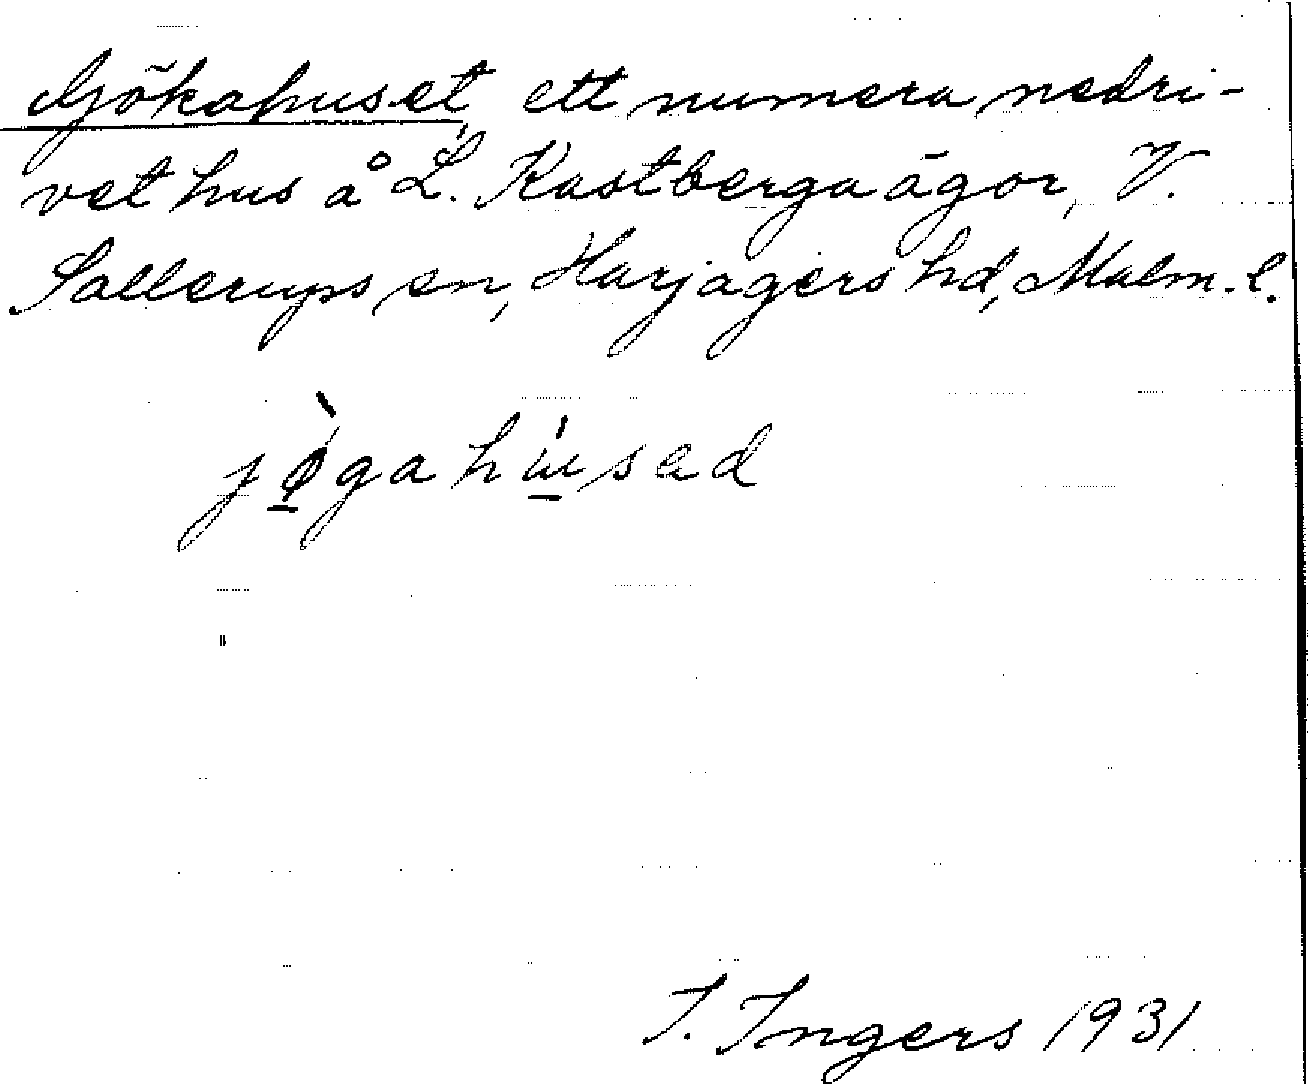 Gökahuset, ett numera nedri-
vet hus å L. Kastberga ägor, V.
Sallerups sn, Harjagers hd, Malm. l.
jø̱̀gahɯ̱́sad
I. Ingers 1931